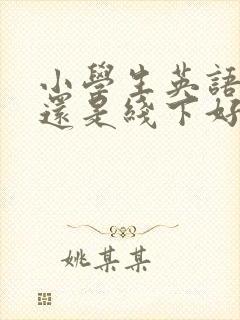 小學生英語
還是綫下好
姚某某